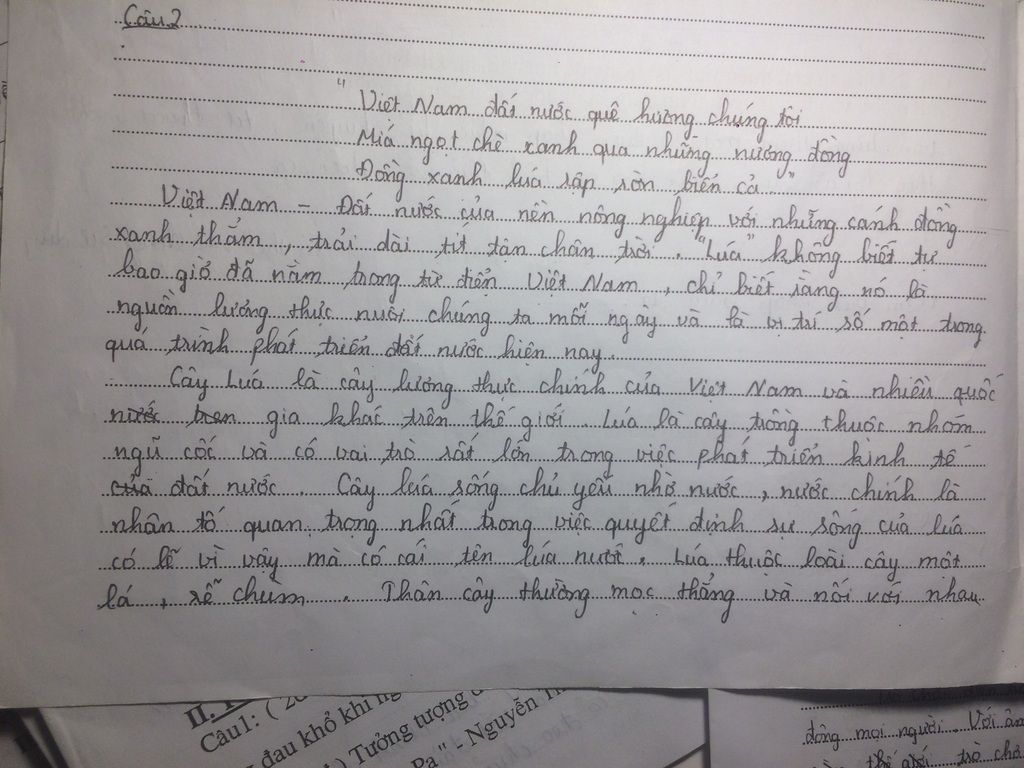 Câu 2
" Việt Nam đất nước quê hương chúng tôi
Miá ngọt chè xanh qua những nương đồng
Đồng xanh lúa rập rờn biển cả..."
Việt Nam – Đất nước của nền nông nghiệp với những cánh đồng
xanh thẳm, trải dài tít tân chân trời. "Lúa" không biết tự
bao giờ đã nằm trong từ điển Việt Nam, chỉ biết rằng nó là
nguồn lương thực nuôi chúng ta mỗi ngày và là vị trí số một trong
quá trình phát triển đất nước hiện nay.
Cây Lúa là cây lương thực chính của Việt Nam và nhiều quốc
gia khác trên thế giới. Lúa là cây trồng thuộc nhóm
ngũ cốc và có vai trò rất lớn trong việc phát triển kinh tế
của đất nước. Cây lúa sống chủ yếu nhờ nước, nước chính là
nhân tố quan trọng nhất trong việc quyết định sự sống của lúa
có lẽ vì vậy mà có cái tên lúa nước. Lúa thuộc loài cây một
lá, rễ chùm. Thân cây thường mọc thẳng và nối với nhau
II.
Câu1: ( 20
đau khổ khi
) Tưởng tượng
Pa" - Nguyễn
đông mọi người. Với
thế giới trò